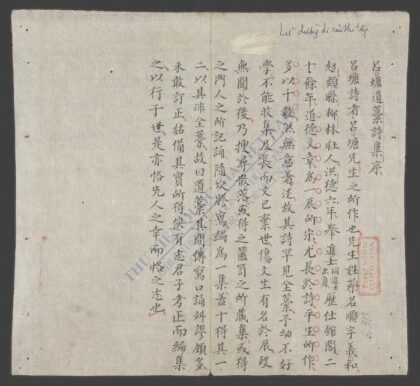 Lữ đường di cảo thi tập
呂塘遺藁詩集序
呂塘詩者呂塘先生之所作也先生姓蔡名順字義和
超類縣柳林社人洪德六年舉進士同進士出身歷仕館閣二
十餘年道德文章為一辰所宗尤長於詩平生所作
多以十數然無意着述故其詩罕見全藁予幼不好
學不能收集及長而文已棄世傷文生有名於辰歿
無聞於後乃搜尋散落或得之篋笥之所藏集或得
之門人之所記誦隨次謄寫編為一集蓋十得其一
二以其非全藁故曰遺藁其間傳寫口誦舛謬頗多
未敢訂正姑備其實所得俟有志君子考正而編集
之以行于世是亦恪先人之幸而恪之志也